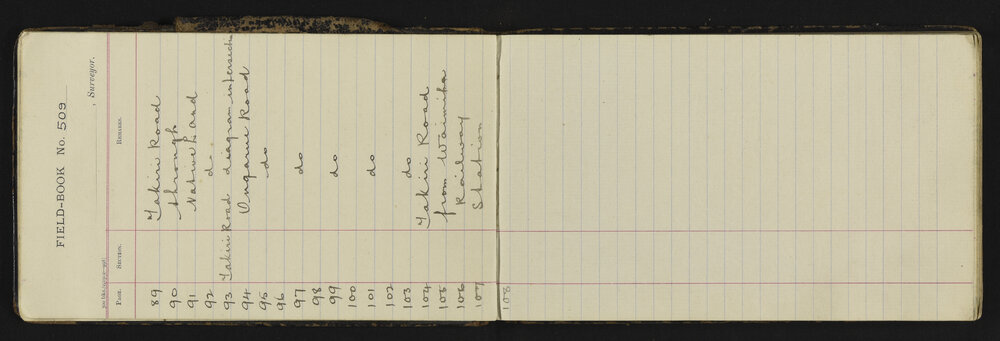 FIELD-BOOK No. 509
, Surveyor.
Page. Section. Remarks.
89 Takiri Road
90 through
91 Native Land
92 do.
93 Takiri Road diagram intersection
94 Ongarue Road
95 do
96
97 do
98
99 do
100
101 do
102
103 do
104 Takiri Road
105 from Waimiha
106 Railway
107 Station
108